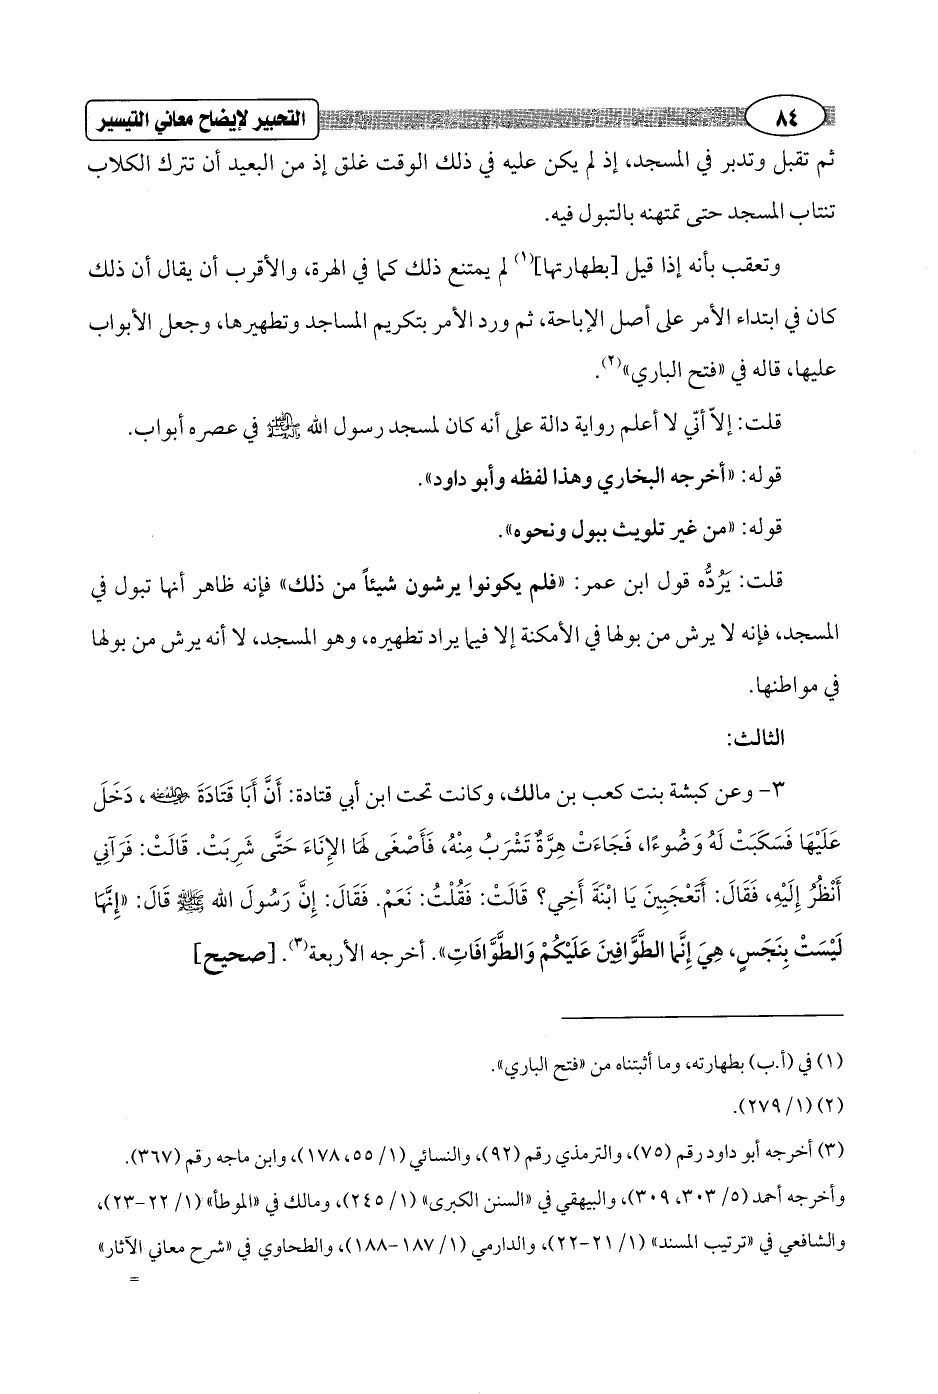 ٨٤
التحبير لإيضاح معاني التيسير
ثم تقبل وتدبر في المسجد، إذ لم يكن عليه في ذلك الوقت غلق إذ من البعيد أن تترك الكلاب
تنتاب المسجد حتى تمتهنه بالتبول فيه.
وتعقب بأنه إذا قيل [بطهارتها](١) لم يمتنع ذلك كما في الهرة، والأقرب أن يقال أن ذلك
كان في ابتداء الأمر على أصل الإباحة، ثم ورد الأمر بتكريم المساجد وتطهيرها، وجعل الأبواب
عليها، قاله في «فتح الباري»(٢).
قلت: إلاّ أنّي لا أعلم رواية دالة على أنه كان لمسجد رسول الله ﷺ في عصره أبواب.
قوله: «أخرجه البخاري وهذا لفظه وأبو داود».
قوله: «من غير تلويث ببول ونحوه».
قلت: يَرُدُّه قول ابن عمر: «فلم يكونوا يرشون شيئاً من ذلك» فإنه ظاهر أنها تبول في
المسجد، فإنه لا يرش من بولها في الأمكنة إلا فيما يراد تطهيره، وهو المسجد، لا أنه يرش من بولها
في مواطنها.
الثالث:
٣- وعن كبشة بنت كعب بن مالك، وكانت تحت ابن أبي قتادة: أَنَّ أَبَا قَتَادَةَ رضي الله عنه، دَخَلَ
عَلَيْهَا فَسَكَبَتْ لَهُ وَضُوءًا، فَجَاءَتْ هِرَّةٌ تَشْرَبُ مِنْهُ، فَأَصْغَى لَهَا الإِنَاءَ حَتَّى شَرِبَتْ. قَالَتْ: فَرَآنِي
أَنْظُرُ إِلَيْهِ، فَقَالَ: أَتَعْجَبِينَ يَا ابْنَةَ أَخِي؟ قَالَتْ: فَقُلْتُ: نَعَمْ. فَقَالَ: إِنَّ رَسُولَ الله ﷺ قَالَ: «إِنَّهَا
لَيْسَتْ بِنَجَسٍ، هِيَ إِنَّمَا الطَّوَّافِينَ عَلَيْكُمْ وَالطَّوَّافَاتِ». أخرجه الأربعة(٣). [صحيح]
(١) في (أ.ب) بطهارته، وما أثبتناه من «فتح الباري».
(٢) (١/ ٢٧٩).
(٣) أخرجه أبو داود رقم (٧٥)، والترمذي رقم (٩٢)، والنسائي (١/ ٥٥، ١٧٨)، وابن ماجه رقم (٣٦٧).
وأخرجه أحمد (٥/ ٣٠٣، ٣٠٩)، والبيهقي في «السنن الكبرى» (١/ ٢٤٥)، ومالك في «الموطأ» (١/ ٢٢-٢٣)،
والشافعي في «ترتيب المسند» (١/ ٢١-٢٢)، والدارمي (١/ ١٨٧-١٨٨)، والطحاوي في «شرح معاني الآثار»
=